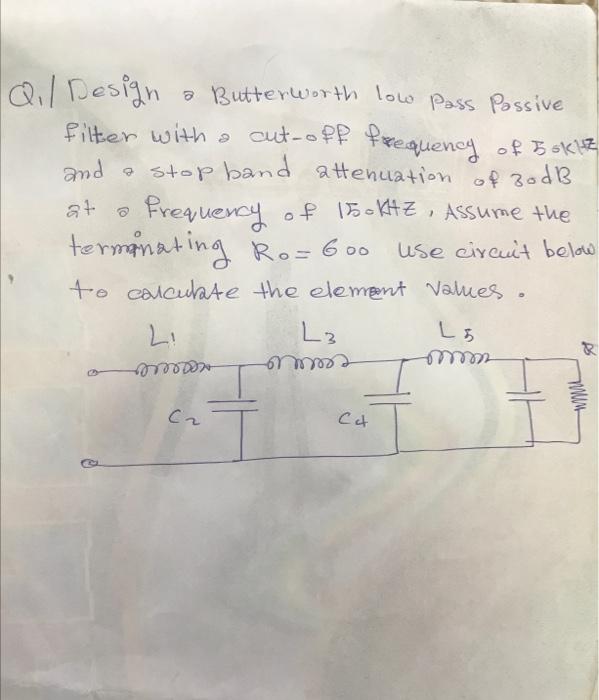 Q.1/ Design a Butterworth low pass Passive
filter with a cut-off frequency of 50KHZ
and a stop band attenuation of 30dB
at a frequency of 150KHZ, Assume the
terminating Ro = 600 use circuit below
to calculate the element values.
L1 L3 L5 R
C2 C4